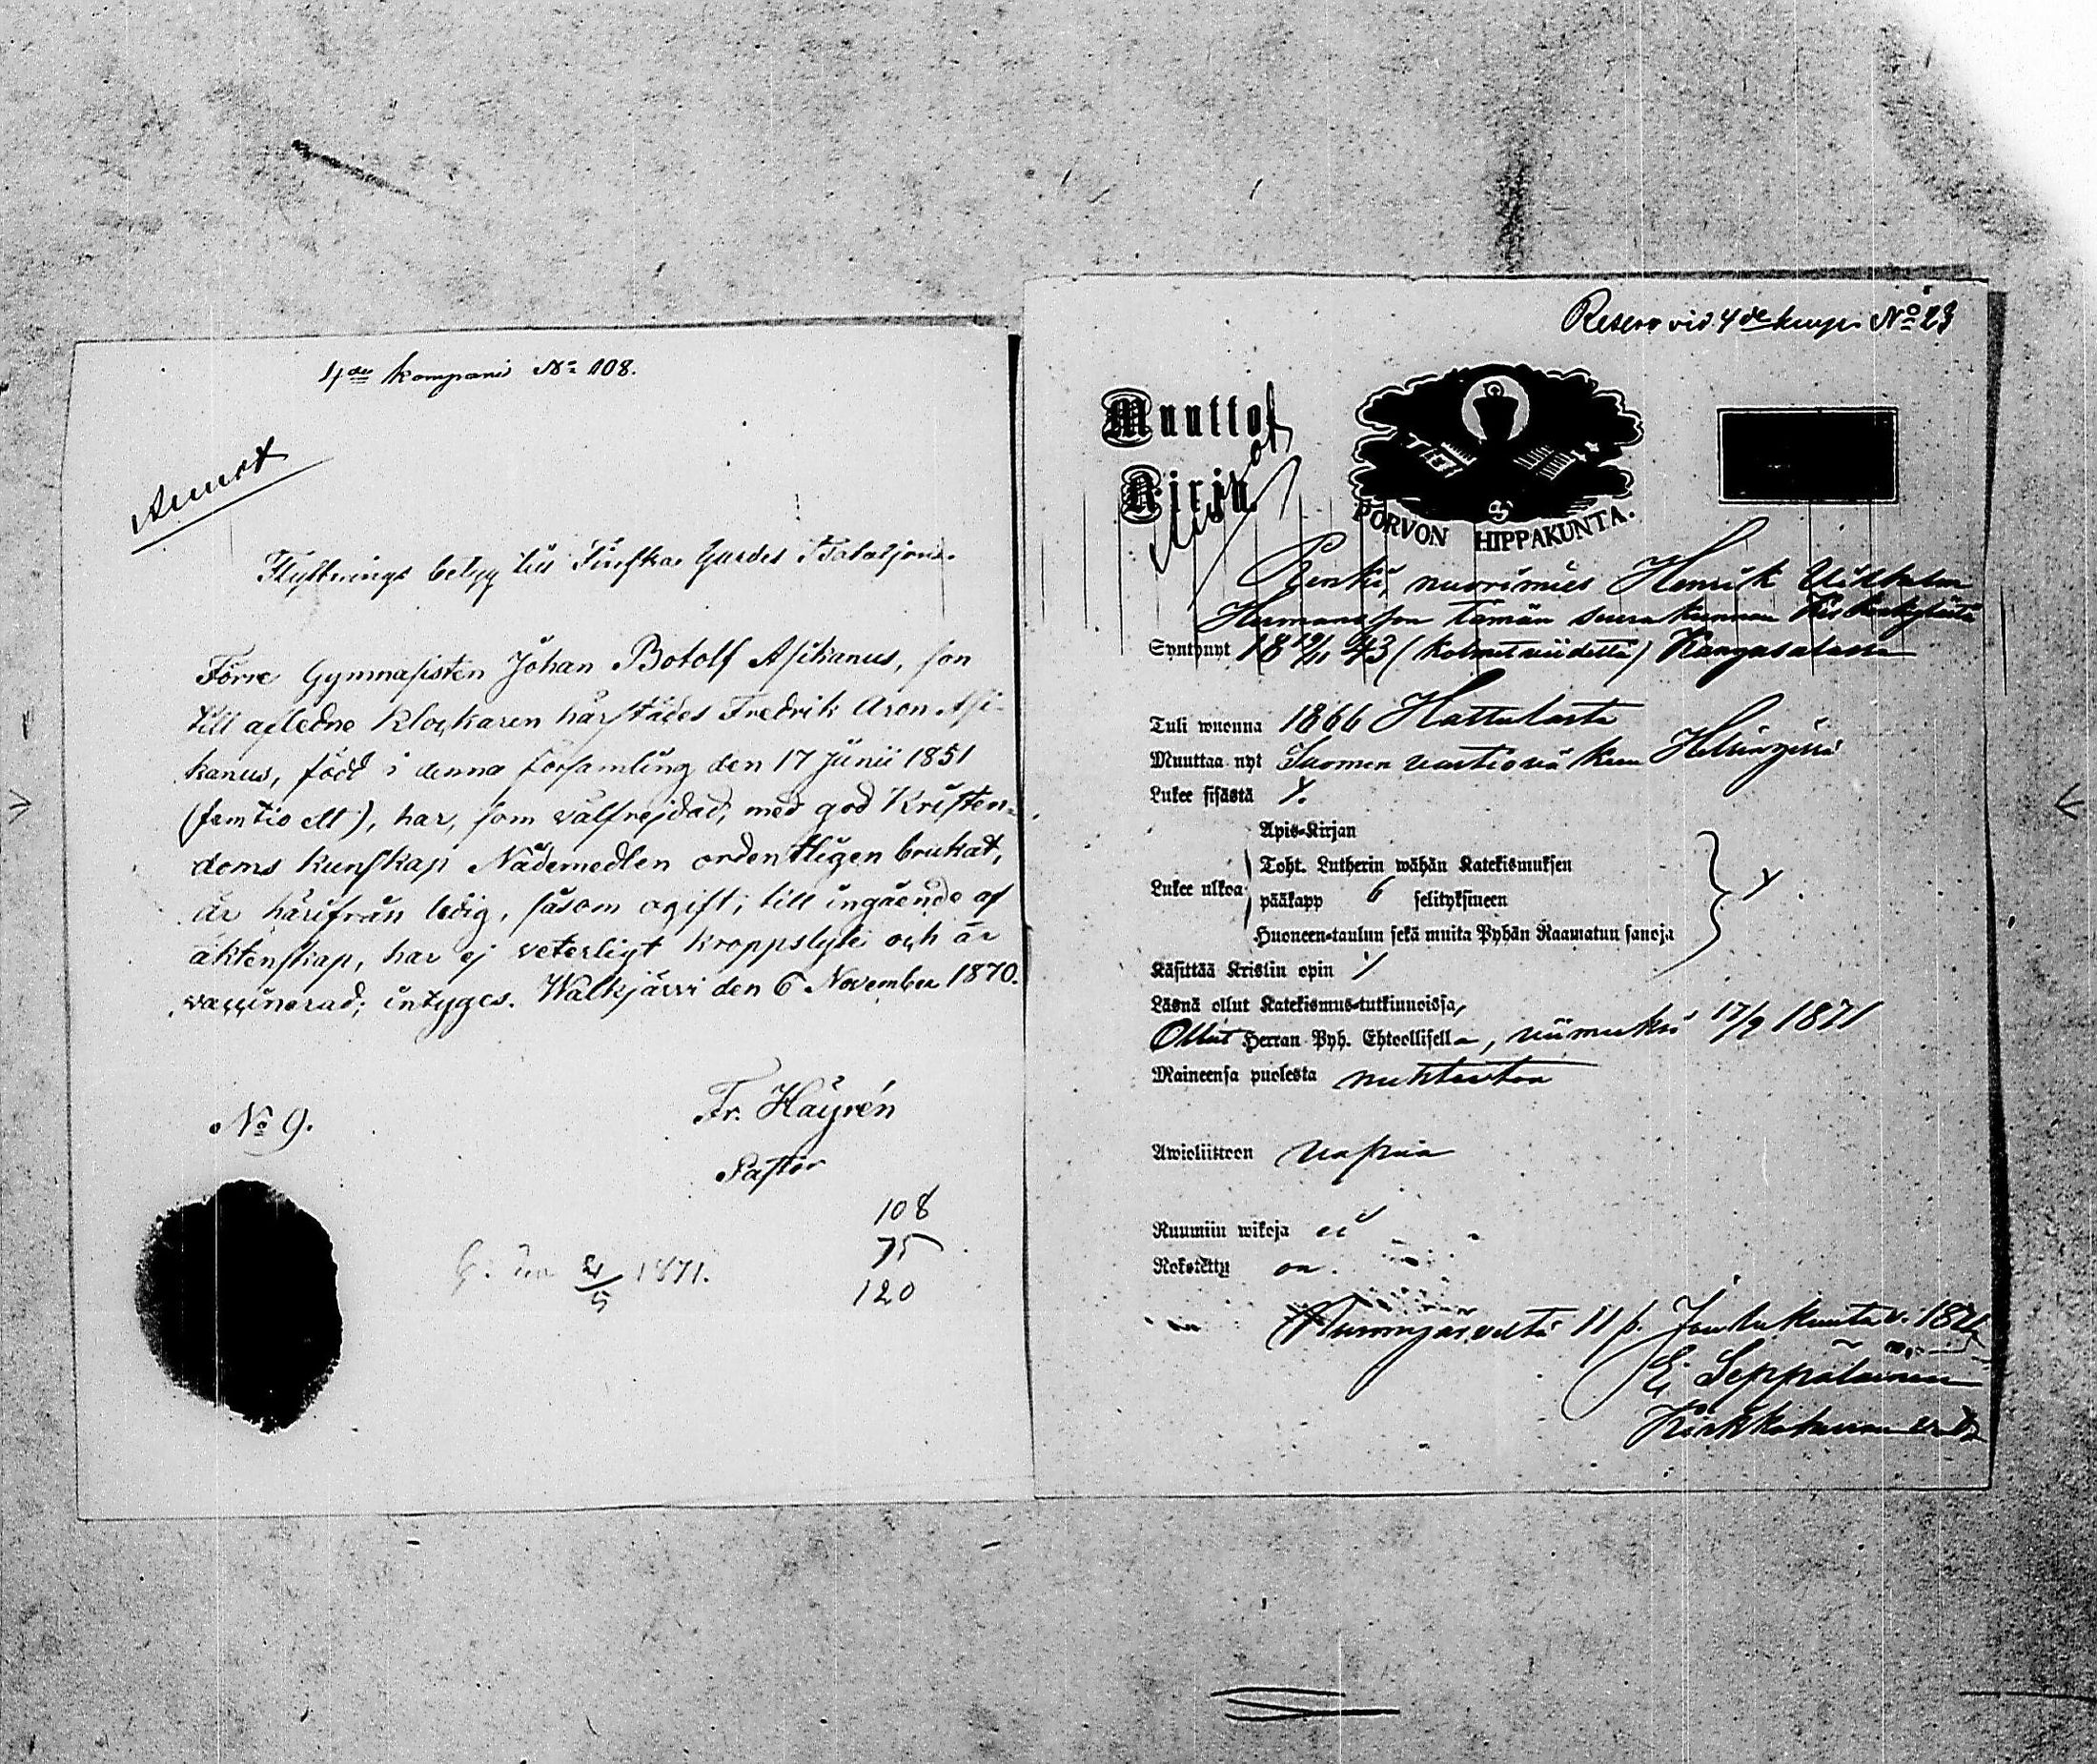 4de kompani No 108.
Flyttnings betyg till Finska Gardes Bataljon.
Förre Gymnasisten Johan Botolf Asikanus, son
till aflidne Klockaren härstädes Fredrik Aron Asi-
kanus, född i denna församling den 17 Junii 1851
(femtio ett), har, som välfrejdad, med god Kristen-
doms kunskap Nådemedlen ordentligen brukat,
är härifrån ledig, såsom ogift, till ingående af
äktenskap, har ej veterligt kroppslyte och är
vaccinerad; intyges. Walkjärvi den 6 November 1870.
No 9.
Fr. Häyrén
Pastor
108
75
120
21/5 1871.
Reserv vid 4de komp. No 23
Muutto
Kirja.
PORVON HIPPAKUNTA.
Renki, nuorimies Henrik Wilhelm
Hermansson tämän seurakunnan
Syntynyt 18 43 (kolmetviidettä) Kangasalassa
Tuli wuonna 1866 Hattulasta
Muuttaa nyt Suomen vartioväkeen Helsingissä
Lukee sisästä
Apis-Kirjan
Toht. Lutherin wähän Katekismuksen
Lukee ulkoa
pääkapp 6 selityksineen
Huoneen-taulun sekä muita Pyhän Raamatun sanoja
Käsittää Kristin opin
Läsnä ollut Katekismus-tutkinnoissa,
Ollut Herran Pyh. Ehtoollisella, viimeksi 17/9 1871
Maineensa puolesta nuhteeton
Awioliitteen vapaa
Ruumiin wikoja ei
Rokotettu on.
Nurmijärveltä 11 p. Joulukuuta v. 1871
E. Seppäläinen